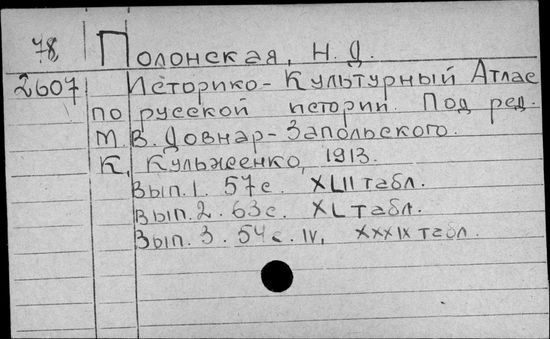 78 Полонская, Н. Д.
2607 Историко-Культурный Атлас
по русской истории. Под ред.
М. В. Довнар-Запольского.
К, Кульженко, 1913.
Вып. 1. 57 с. XLII табл.
Вып. 2. 63 с. XL табл.
Вып. 3. 54 с. IV, XXXIX табл.